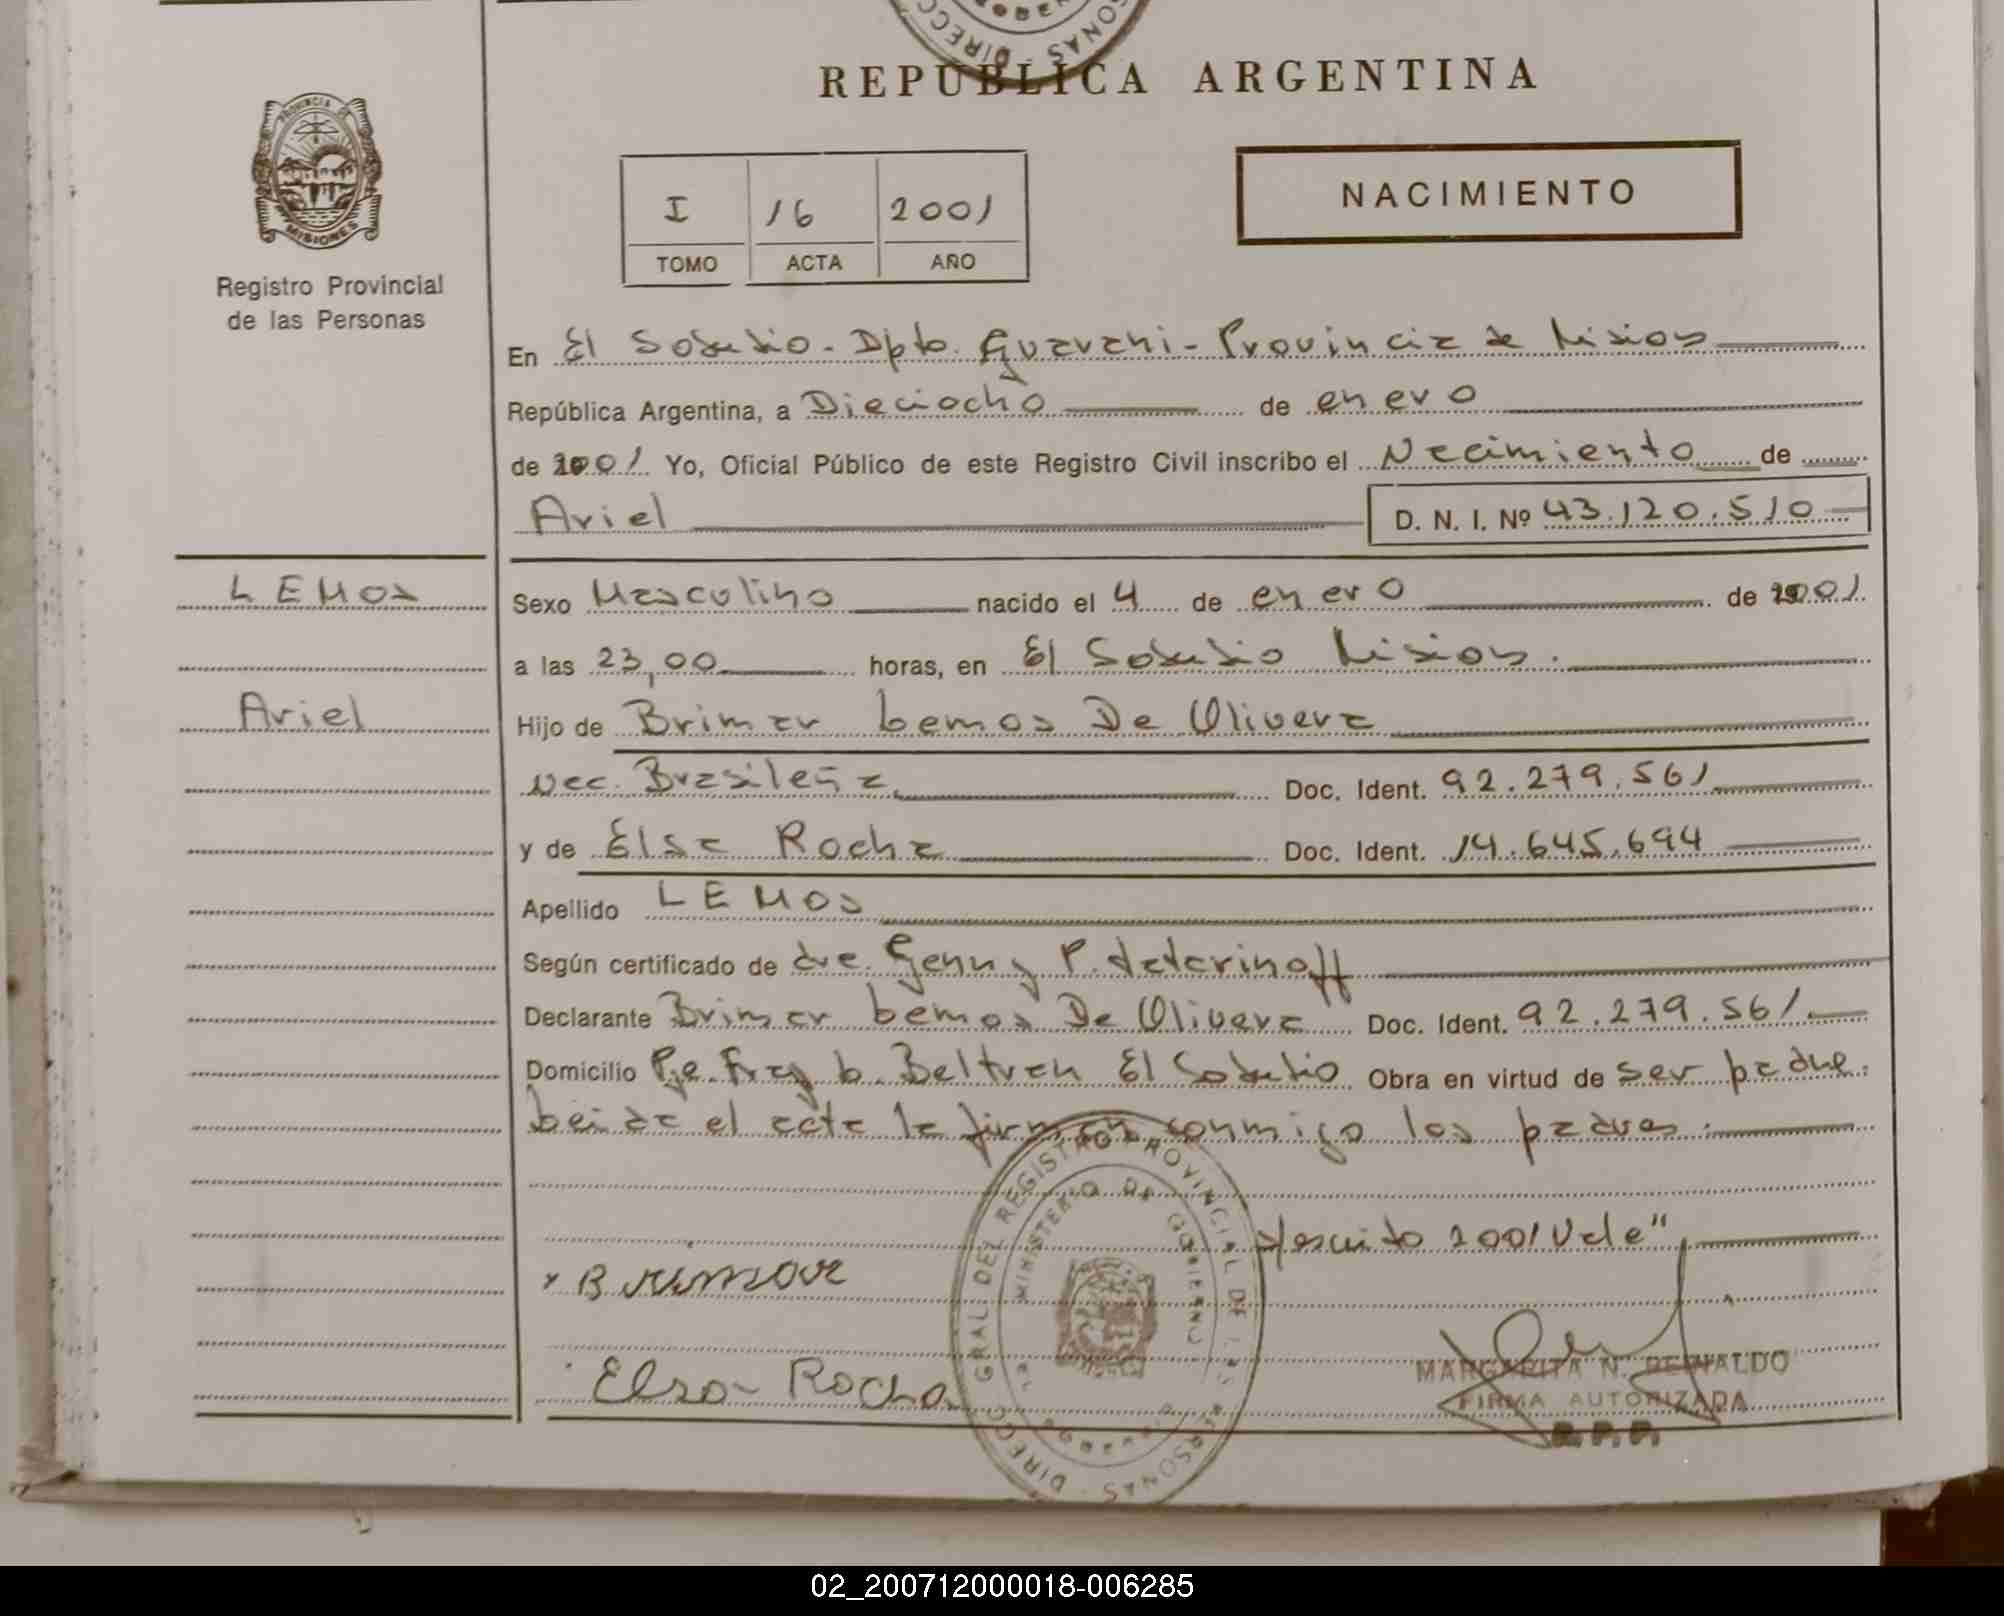 REPÚBLICA ARGENTINA
PROVINCIA DE
MISIONES
Registro Provincial
de las Personas
I 16 2001
TOMO ACTA AÑO
NACIMIENTO
En El Soberbio - Dpto. Guarani - Provincia de Misiones
República Argentina, a Dieciocho de enero
de 2001. Yo, Oficial Público de este Registro Civil inscribo el Nacimiento de
Ariel D. N. I. Nº 43.120.510
LEMOS
Sexo Masculino nacido el 4 de enero de 2001.
a las 23,00 horas, en El Soberbio Misiones.
Ariel
Hijo de Brimar Lemos De Olivera
Nac. Brasileña Doc. Ident. 92.279.561
y de Elsa Rocha Doc. Ident. 14.645.694
Apellido LEMOS
Según certificado de Genny P.
Declarante Brimar Lemos De Olivera Doc. Ident. 92.279.561.
Domicilio Pje. Fray L. Beltran El Soberbio Obra en virtud de ser padre.
Leida el acta la firman conmigo los padres.
2001 Vale"
Brimar
Elsa Rocha
DIRECC. GRAL DEL REGISTRO PROVINCIAL DE LAS PERSONAS
MINISTERIO DE GOBIERNO
MARGARITA N. REINALDO
FIRMA AUTORIZADA
R.P.P.
02_200712000018-006285